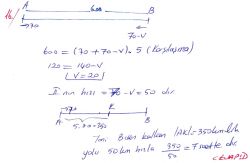 16.)
A 600 B
→70 70-V
600 = (70 + 70 - V) · 5 (Karşılaşma)
120 = 140 - V
V = 20
II nin hızı = 70 - V = 50 dir
→70
A K B
5.70 = 350
Yani B'den kalkan |AK| = 350 km lik
yolu 50 km hızla 350/50 = 7 saatte alır.
(CEVAP: D)